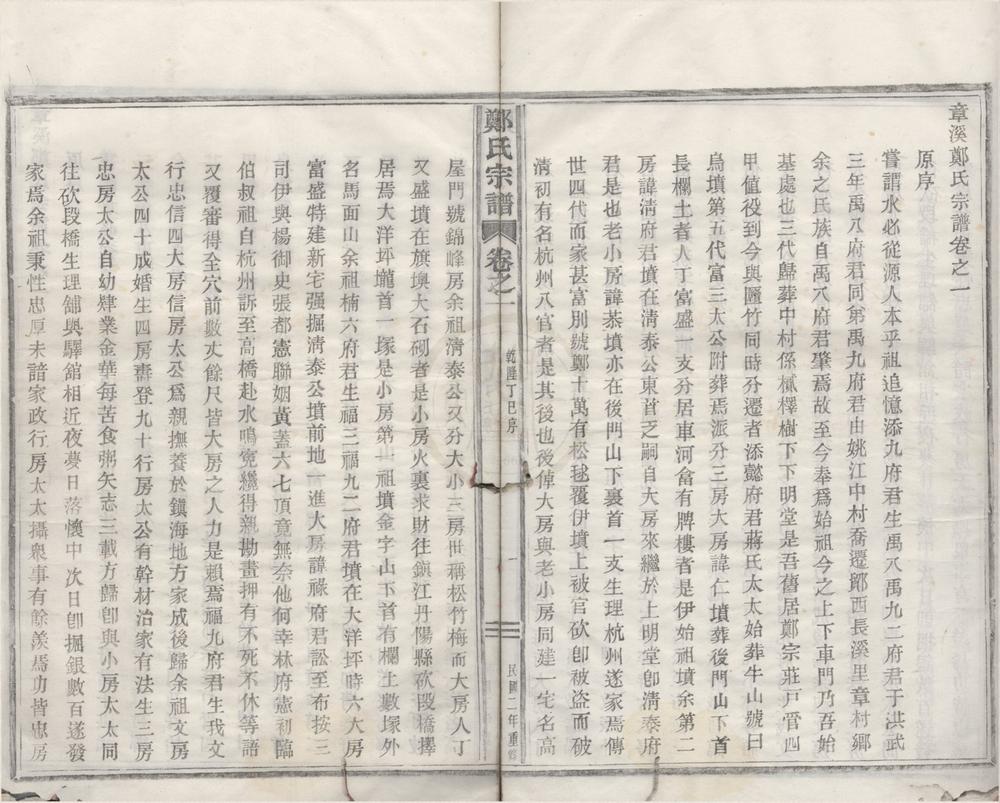 章溪鄭氏宗譜卷之一
原序
嘗謂水必從源人本乎祖追憶添九府君生禹八禹九二府君于洪武
三年禹八府君同弟禹九府君由姚江中村喬遷鄮西長溪里章村鄉
余之氏族自禹八府君肇焉故至今奉爲始祖今之上下車門乃吾始
基處也三代歸葬中村係檅檡樹下下明堂是吾舊居鄭宗莊戸管四
甲値役到今與匾竹同時分遷者添懿府君蔣氏太太始葬牛山號曰
烏墳第五代富三太公附葬焉派分三房大房諱仁墳葬後門山下首
長欄土者人丁富盛一支分居車河畲有牌樓者是伊始祖墳余第二
房諱淸府君墳在淸泰公東首乏嗣自大房來繼於上明堂卽淸泰府
君是也老小房諱恭墳亦在後門山下裏首一支生理杭州遂家焉傳
世四代而家甚富別號鄭十萬有松毬覆伊墳上被官砍卽被盜而破
淸初有名杭州八官者是其後也後倬大房與老小房同建一宅名高
鄭氏宗譜
卷之一
乾隆丁巳序
一
民國二年重修
屋門號錦峰房余祖淸泰公又分大小三房世稱松竹梅而大房人丁
又盛墳在旗墺大石砌者是小房火裏求財往鎭江丹陽縣砍段橋擇
居焉大洋坪壠首一塚是小房第一祖墳金字山下首有欄土數塚外
名馬面山余祖楠六府君生福三福九二府君墳在大洋坪時六大房
富盛特建新宅强掘淸泰公墳前地一進大房諱祿府君訟至布按三
司伊與楊御史張都憲聯姻黃蓋六七頂竟無奈他何幸林府憲初臨
伯叔祖自杭州訴至高橋赴水鳴寃纔得親勘畫押有不死不休等語
又覆審得全穴前數丈餘尺皆大房之人力是賴焉福九府君生我文
行忠信四大房信房太公爲親撫養於鎭海地方家成後歸余祖文房
太公四十成婚生四房壽登九十行房太公有幹材治家有法生三房
忠房太公自幼肄業金華每苦食粥矢志三載方歸卽與小房太太同
往砍段橋生理舖與驛舘相近夜夢日落懷中次日卽掘銀數百遂發
家焉余祖秉性忠厚未諳家政行房太太攝衆事有餘羡焉功皆忠房